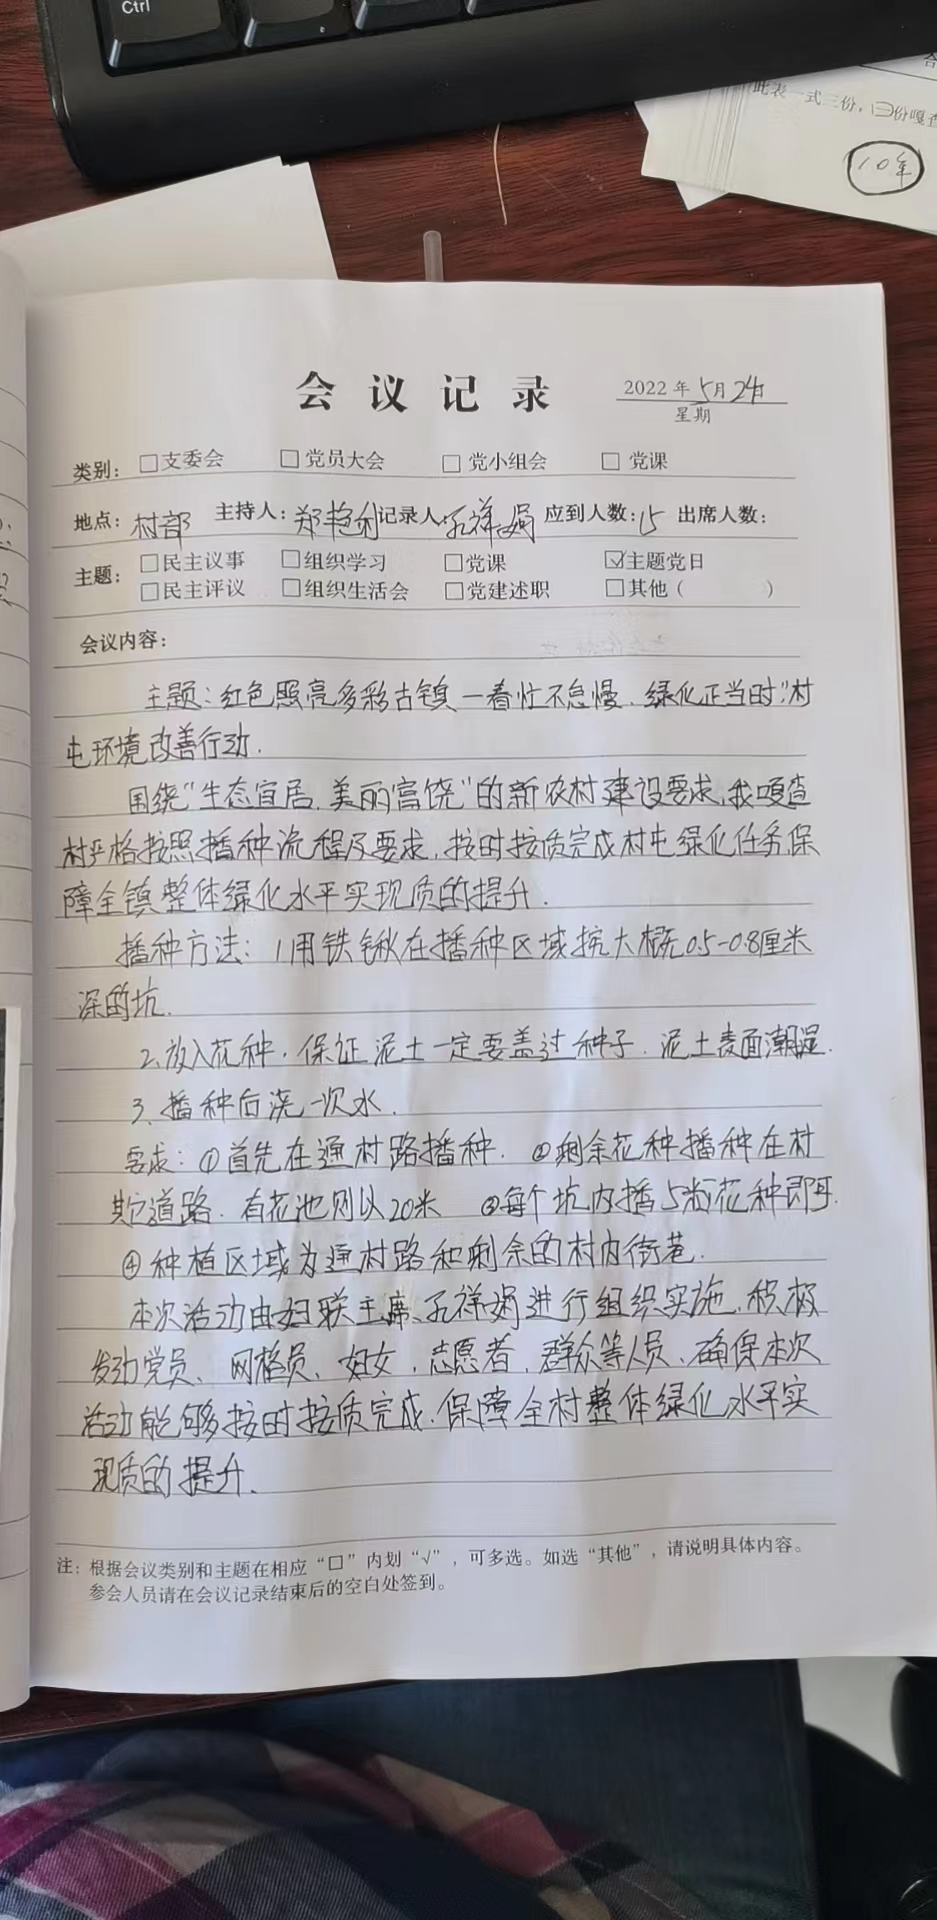 Ctrl
此表一式三份,
份嘎查
10年
会议记录
2022年5月24日
星期
类别: □支委会 □党员大会 □党小组会 □党课
地点: 村部 主持人: 郑艳 记录人: 孔祥娟 应到人数: 15 出席人数:
主题: □民主议事 □组织学习 □党课 ☑主题党日
□民主评议 □组织生活会 □党建述职 □其他( )
会议内容:
主题:红色照亮多彩古镇一春忙不怠慢.绿化正当时"村
屯环境改善行动.
围绕"生态宜居.美丽富饶"的新农村建设要求,我嘎查
村严格按照播种流程及要求,按时按质完成村屯绿化任务,保
障全镇整体绿化水平实现质的提升.
播种方法: 1用铁锹在播种区域挖大概0.5-0.8厘米
深的坑.
2.放入花种,保证泥土一定要盖过种子.泥土表面潮湿.
3.播种后浇一次水.
要求:①首先在通村路播种. ②剩余花种播种在村
其它道路.有花池则以20米 ③每个坑内播5粒花种即可.
④种植区域为通村路和剩余的村内街巷.
本次活动由妇联主席孔祥娟进行组织实施,积极
发动党员、网格员、妇女,志愿者,群众等人员,确保本次
活动能够按时按质完成,保障全村整体绿化水平实
现质的提升.
注: 根据会议类别和主题在相应“□”内划“√”,可多选。如选“其他”,请说明具体内容。
参会人员请在会议记录结束后的空白处签到。